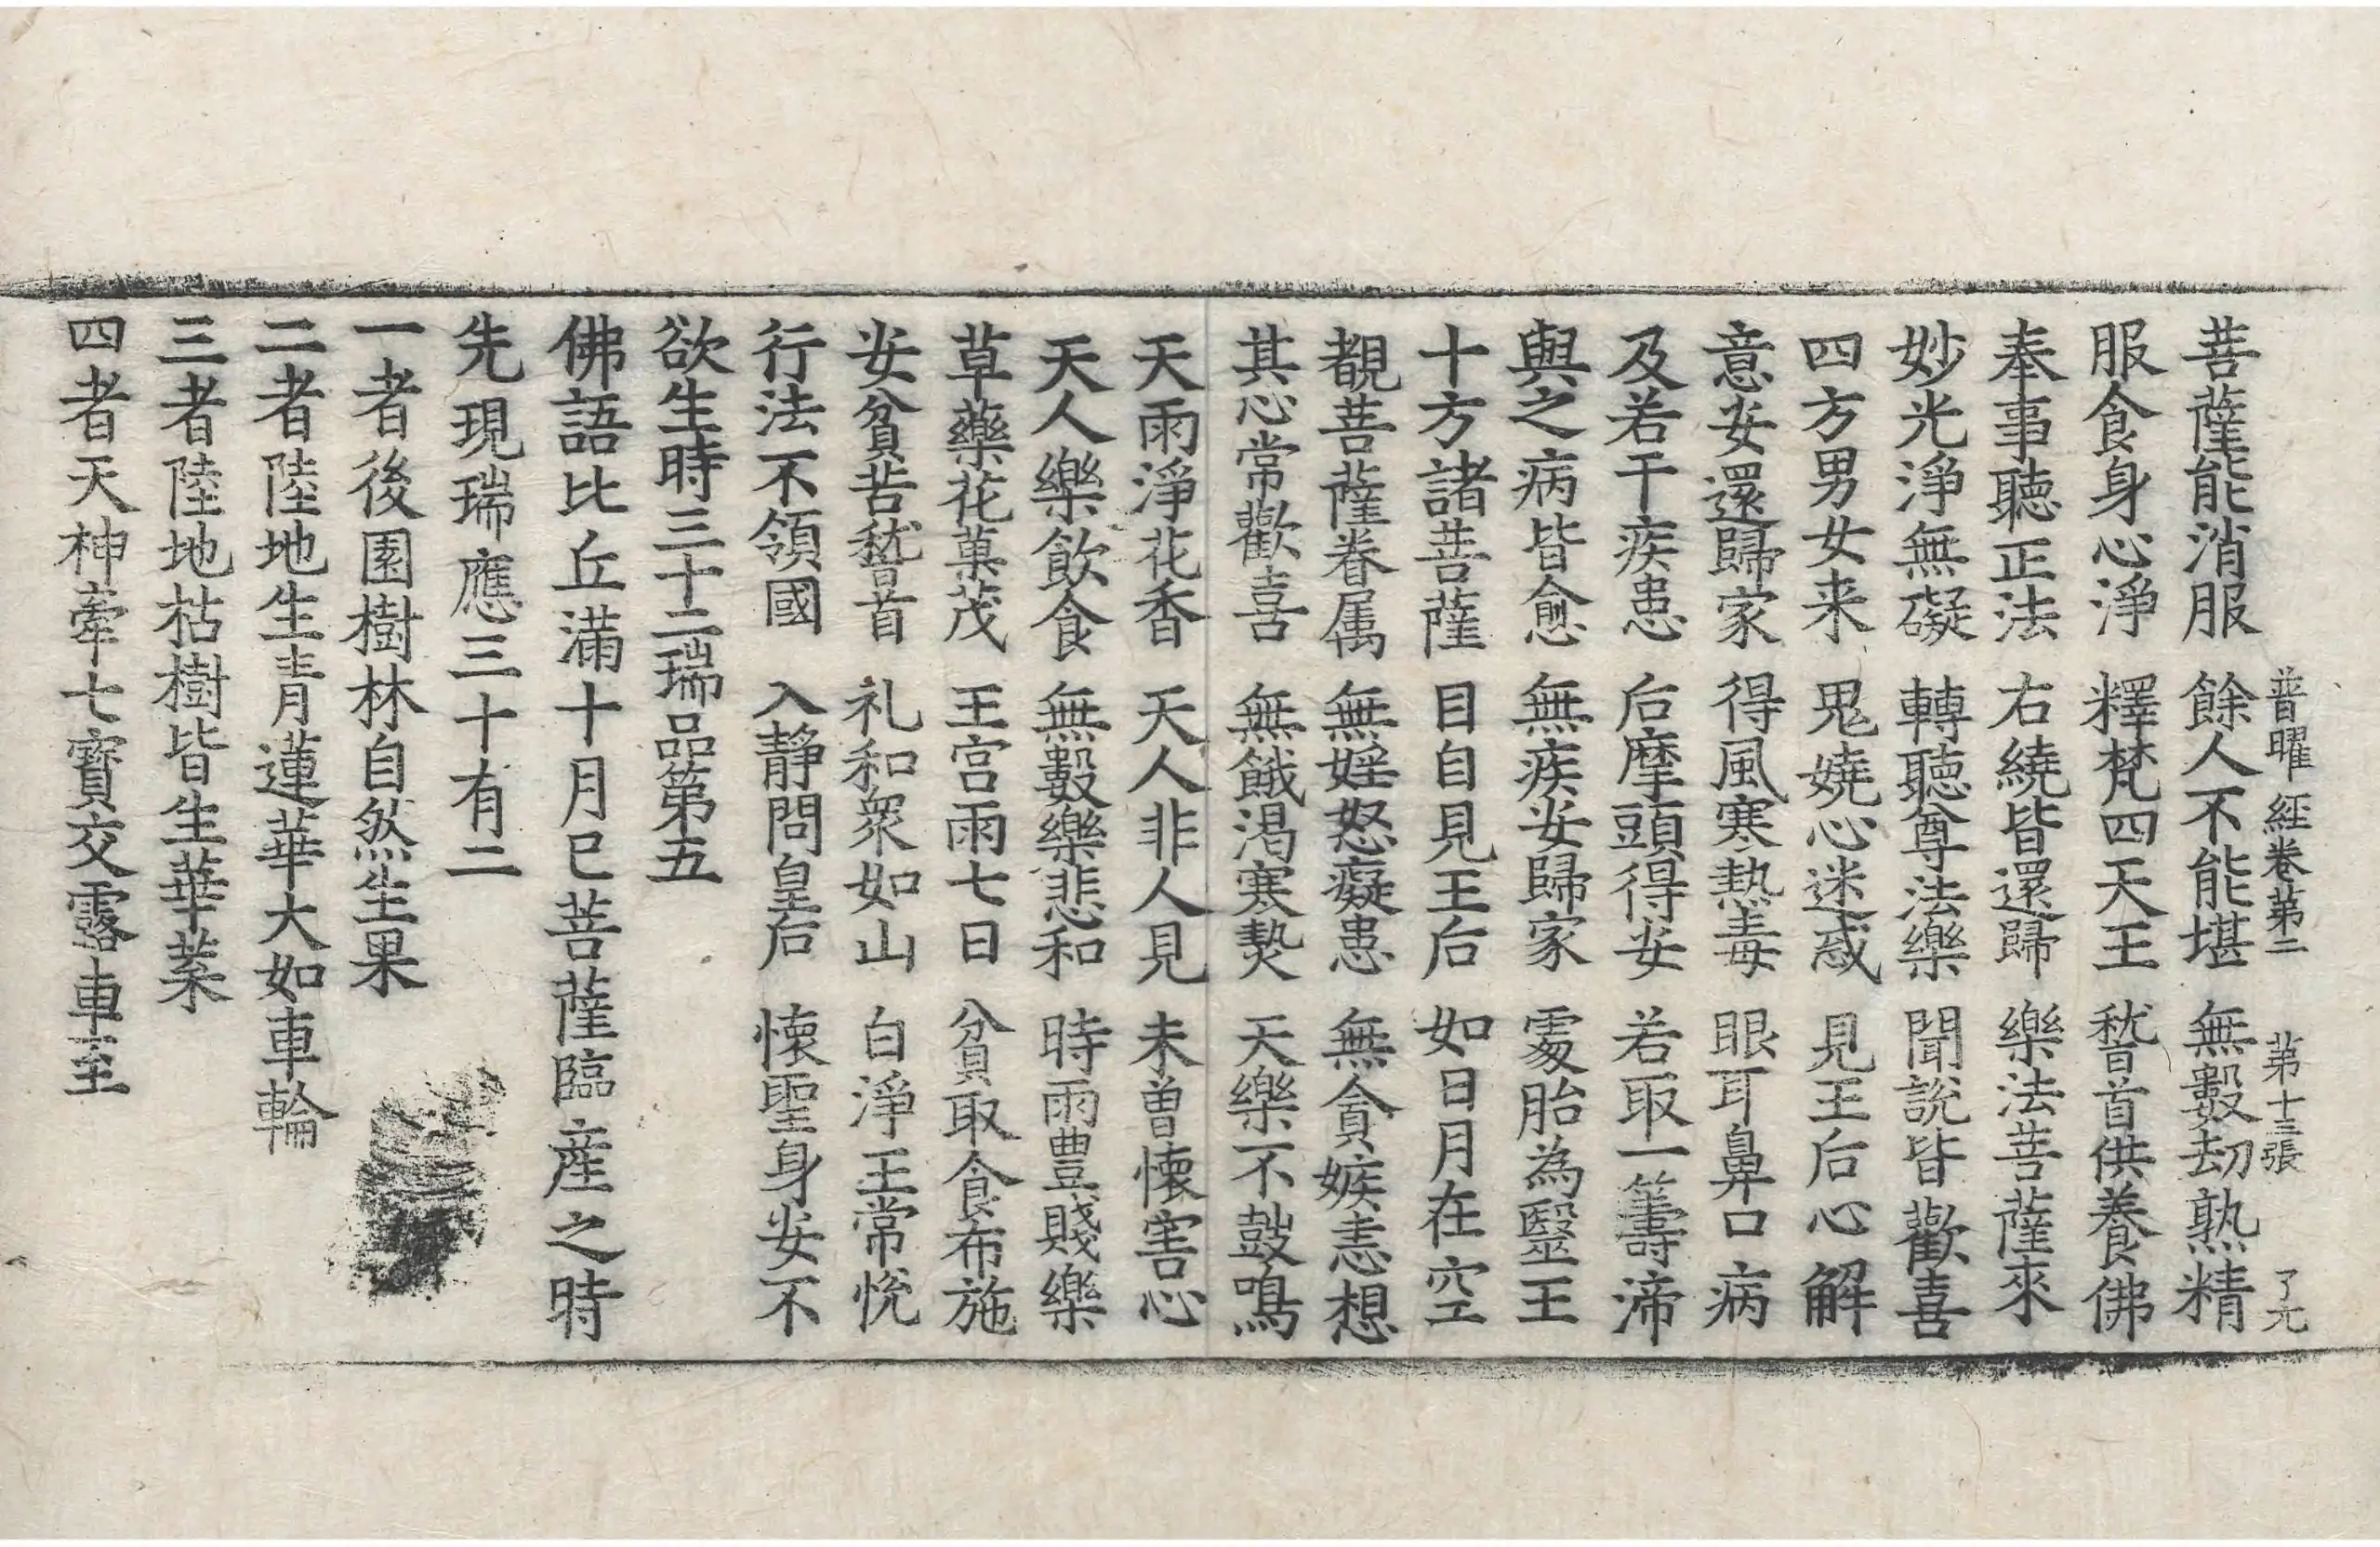 普曜經卷第二　第十三張　了元
菩薩能消服　餘人不能堪　無數劫熟精
服食身心淨　釋梵四天王　嵇首供養佛
奉事聽正法　右繞皆還歸　樂法菩薩來
妙光淨無礙　轉聽尊法樂　聞說皆歡喜
四方男女来　鬼嬈心迷惑　見王后心解
意安還歸家　得風寒熱毒　眼耳鼻口病
及若干疾患　后摩頭得安　若取一籌渧
與之病皆愈　無疾安歸家　處胎為毉王
十方諸菩薩　目自見王后　如日月在空
覩菩薩眷属　無婬怒癡患　無貪嫉恚想
其心常歡喜　無餓渴寒熱　天樂不鼓鳴
天雨淨花香　天人非人見　未曽懷害心
天人樂飲食　無數樂悲和　時雨豊賤樂
草藥花菓茂　王宫雨七日　貧取食布施
安貧苦嵇首　礼和衆如山　白淨王常悅
行法不領國　入静問皇后　懷聖身安不
欲生時三十二瑞品第五
佛語比丘滿十月已菩薩臨産之時
先現瑞應三十有二
一者後園樹林自然生果
二者陸地生青蓮華大如車輪
三者陸地枯樹皆生華葉
四者天神牽七寶交露車至